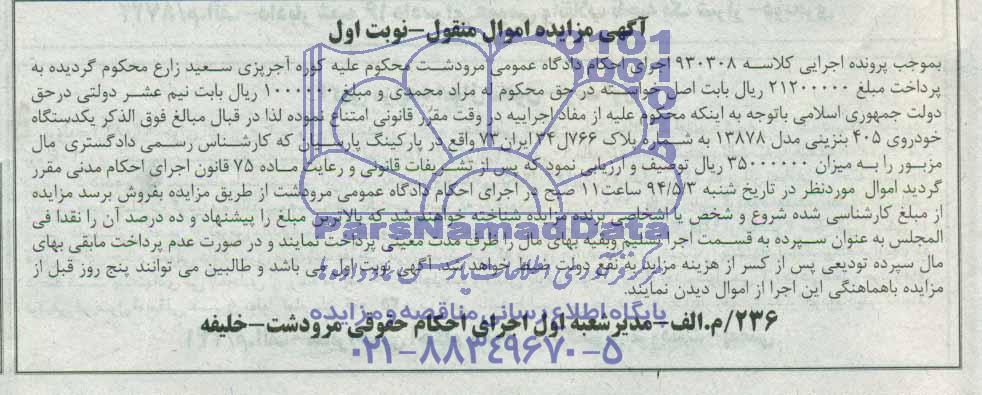 آگهی مزایده اموال منقول-نوبت اول
بموجب پرونده اجرایی کلاسه ۹۳۰۳۰۸ اجرای احکام دادگاه عمومی مرودشت محکوم علیه کوره آجرپزی سعید زارع محکوم گردیده به
پرداخت مبلغ ۲۱۲۰۰۰۰۰ ریال بابت اصل خواسته در حق محکوم له مراد محمدی و مبلغ ۱۰۰۰۰۰۰ ریال بابت نیم عشر دولتی درحق
دولت جمهوری اسلامی باتوجه به اینکه محکوم علیه از مفاد اجراییه در وقت مقرر قانونی امتناع نموده لذا در قبال مبالغ فوق الذکر یکدستگاه
خودروی ۴۰۵ بنزینی مدل ۱۳۸۷۸ به شماره پلاک ۷۶۶ل۳۴ ایران۷۳ واقع در پارکینگ پارسیان که کارشناس رسمی دادگستری مال
مزبور را به میزان ۳۵۰۰۰۰۰۰ ریال توصیف و ارزیابی نمود که پس از تشریفات قانونی و رعایت ماده ۷۵ قانون اجرای احکام مدنی مقرر
گردید اموال موردنظر در تاریخ شنبه ۹۴/۵/۳ ساعت۱۱ صبح در اجرای احکام دادگاه عمومی مرودشت از طریق مزایده بفروش برسد مزایده
از مبلغ کارشناسی شده شروع و شخص یا اشخاصی برنده مزایده شناخته خواهند شد که بالاترین مبلغ را پیشنهاد و ده درصد آن را نقدا فی
المجلس به عنوان سپرده به قسمت اجرا تسلیم وبقیه بهای مال را ظرف مدت معینی پرداخت نمایند و در صورت عدم پرداخت مابقی بهای
مال سپرده تودیعی پس از کسر از هزینه مزایده به نفع دولت ضبط خواهد شد. آگهی نوبت اول می باشد و طالبین می توانند پنج روز قبل از
مزایده باهماهنگی این اجرا از اموال دیدن نمایند.
۲۳۶/م.الف-مدیرشعبه اول اجرای احکام حقوقی مرودشت-خلیفه
ParsNamadData
پایگاه اطلاع رسانی مناقصه و مزایده
۰۲۱-۸۸۳۴۹۶۷۰-۵